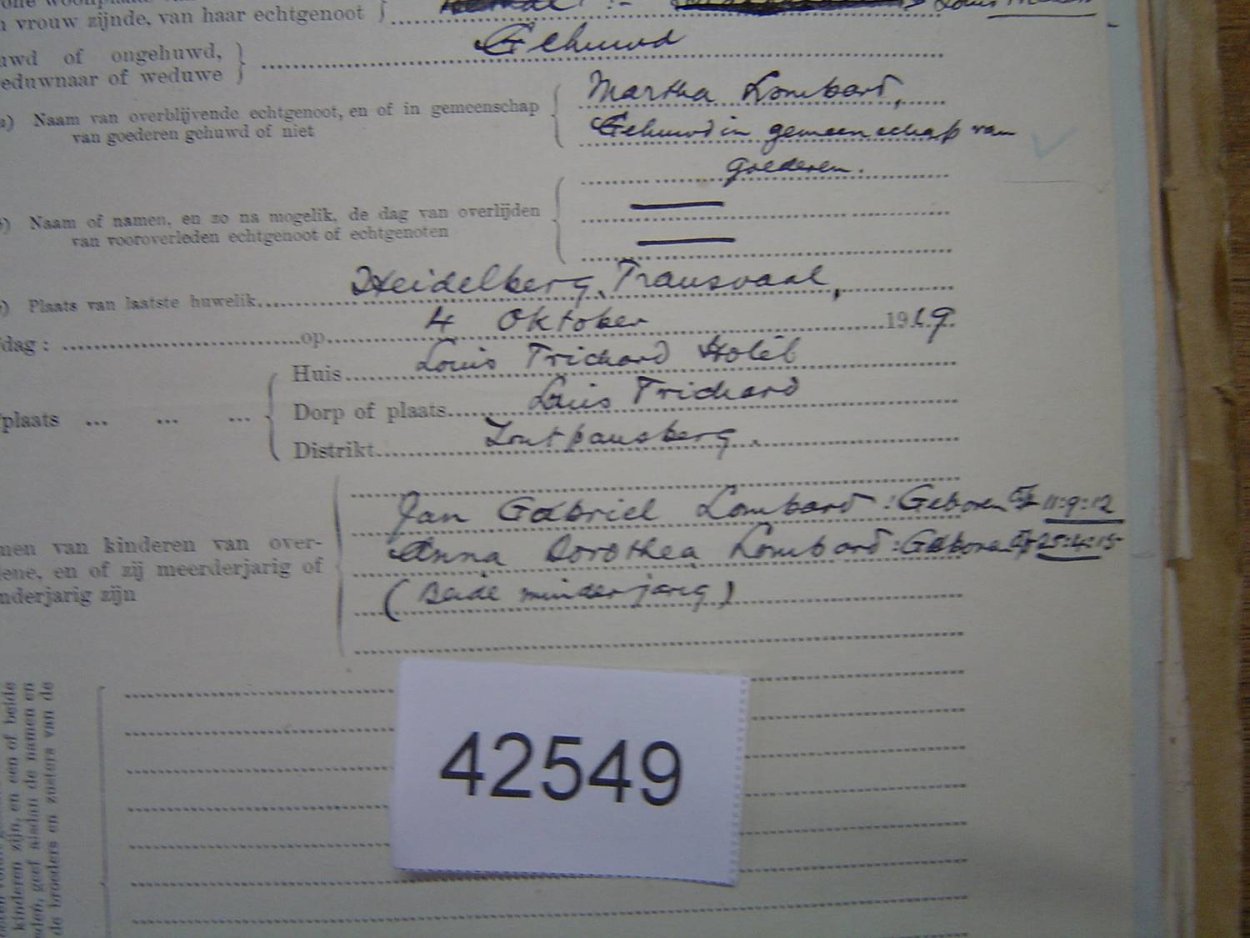 vrouw zijnde, van haar echtgenoot
of ongehuwd, Gehuwd
weduwnaar of weduwe
Naam van overblijvende echtgenoot, en of in gemeenschap Martha Lombard,
van goederen gehuwd of niet Gehuwd in gemeenschap van
goederen.
Naam of namen, en zo na mogelik, de dag van overlijden
van vooroverleden echtgenoot of echtgenoten
Plaats van laatste huwelik Heidelberg, Transvaal,
dag: op 4 Oktober 1919.
Huis Louis Trichard Hotèl
plaats ... ... ... Dorp of plaats Louis Trichard
Distrikt Zoutpansberg.
Jan Gabriel Lombard : Geboren op 11:9:12
men van kinderen van over- Anna Dorothea Lombard : Geboren op 25:4:15
dene, en of zij meerderjarig of (Beide minderjarig)
nderjarig zijn
42549
kinderen zijn, en een of beide
geef alsdan de namen en
de broeders en zusters van de